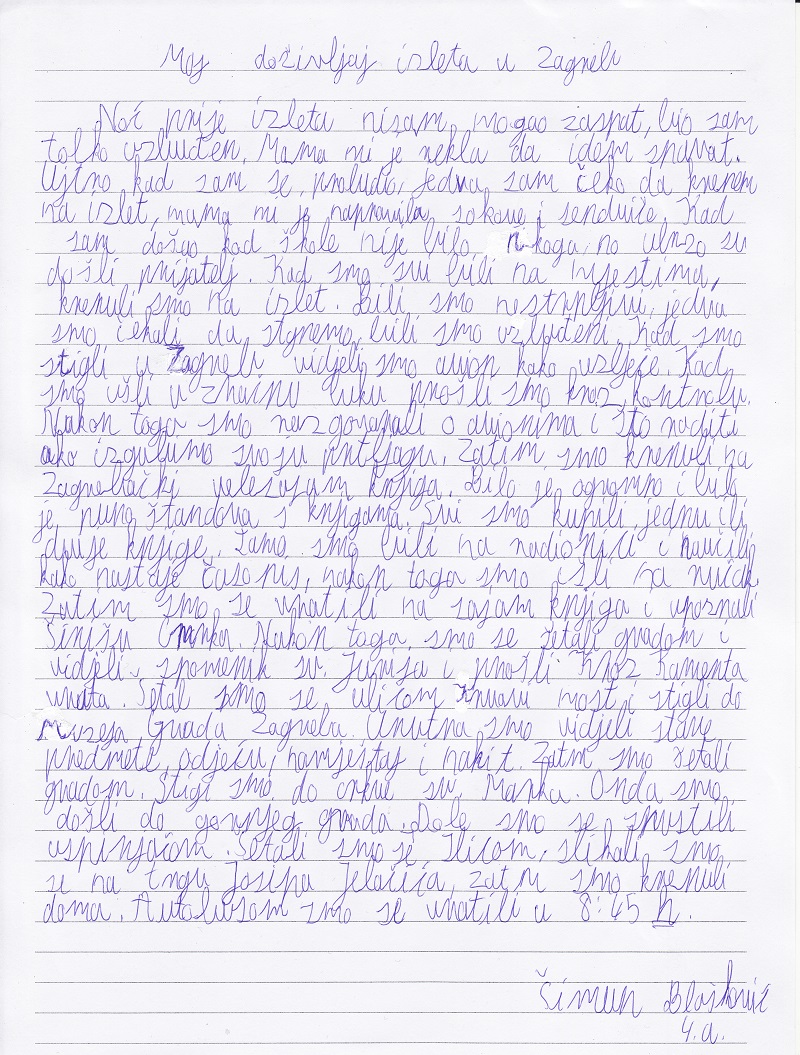 Moj doživljaj izleta u Zagreb
Noć prije izleta nisam mogao zaspat, bio sam
tolko uzbuđen. Mama mi je rekla da idem spavat.
Ujtro kad sam se probudio, jedva sam čeko da krenem
na izlet, mama mi je napravila sokove i sendviče. Kad
sam došao kod škole nije bilo nikoga, no ubrzo su
došli prijatelj. Kad smo svi bili na mjestima,
krenuli smo na izlet. Bili smo nestrpljivi, jedva
smo čekali da stgnemo, bili smo uzbuđeni. Kad smo
stigli u Zagreb vidjeli smo avion kako uzljeće. Kad
smo ušli u zračnu luku prošli smo kroz kontrolu.
Nakon toga smo razgovarali o avionima i što raditi
ako izgubimo svoju prtljagu. Zatim smo krenuli na
Zagrebački velesajam knjiga. Bilo je ogromno i bilo
je puno štandova s knjigama. Svi smo kupili jednu ili
dvije knjige. Tamo smo bili na radionici i naučili
kako nastaje časopis, nakon toga smo išli na ručak.
Zatim smo se vratili na sajam knjiga i upoznali
Sinišu Cmrka. Nakon toga smo se šetali gradom i
vidjeli spomenik sv. Jurja i prošli kroz Kamenta
vrata. Šetal smo se ulicom Krvavi most i stigli do
Muzeja Grada Zagreba. Unutra smo vidjeli stare
predmete, odjeću, namještaj i nakit. Zatm smo šetali
gradom. Stigl smo do crkve sv. Marka. Onda smo
došli do gornjeg grada. Dole smo se spustili
uspinjačom. Šetali smo se Ilicom, slikali smo
se na trgu Josipa Jelačića, zatm smo krenuli
doma. Autobusom smo se vratili u 8:45 h.
Šimun Blašković
4.a.